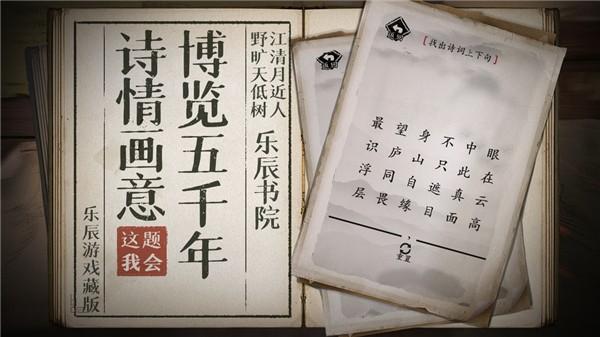 江清月近人
野旷天低树
乐辰书院
博览五千年
诗情画意
这题
我会
乐辰游戏藏版
[找出诗词上下句]
最望身不中眼
识庐山只此在
浮同自遮真云
层畏缘目面高
，
重置